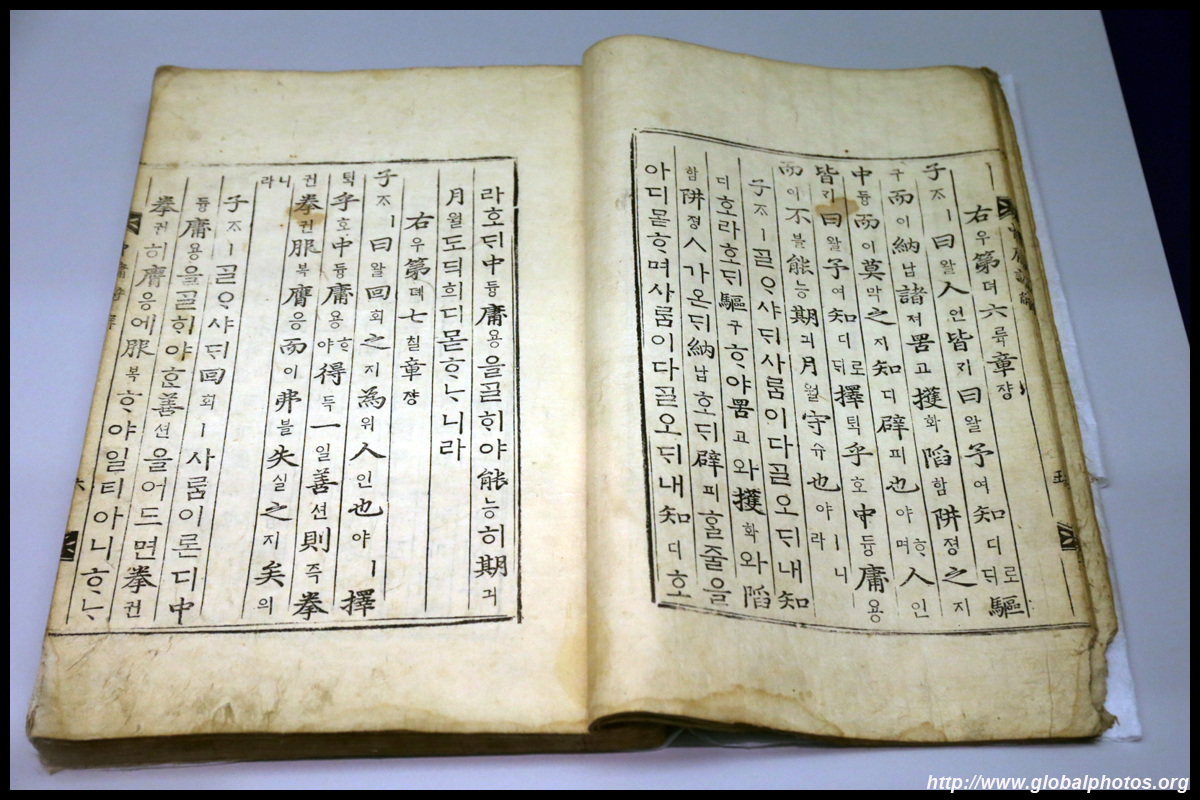 中庸諺解 五
右우第뎨六륙章쟝
子ᄌㅣ曰왈人인皆ᄀᆡ曰왈予여知디로ᄃᆡ驅
구而이納납諸져罟고擭화陷함阱졍之지
中듕而이莫막之지知디辟피也야ᄒᆞ며人인
皆ᄀᆡ曰왈予여知디로ᄃᆡ擇ᄐᆡᆨ乎호中듕庸용
而이不블能능期긔月월守슈也야ㅣ니라
子ᄌㅣᄀᆞᆯᄋᆞ샤ᄃᆡ사ᄅᆞᆷ이다ᄀᆞᆯ오ᄃᆡ내知
디호라호ᄃᆡ驅구ᄒᆞ야罟고와擭화와陷
함阱졍ㅅ가온ᄃᆡ納납호ᄃᆡ辟피ᄒᆞᆯ줄을
아디몯ᄒᆞ며사ᄅᆞᆷ이다ᄀᆞᆯ오ᄃᆡ내知디호
라호ᄃᆡ中듕庸용을ᄀᆞᆯᄒᆡ야能능히期긔
月월도딕희디몯ᄒᆞᄂᆞ니라
右우第뎨七칠章쟝
子ᄌㅣ曰왈回회之지為위人인也야ㅣ擇
ᄐᆡᆨ乎호中듕庸용ᄒᆞ야得득一일善션則즉拳
권拳권服복膺응而이弗블失실之지矣의
니라
子ᄌㅣᄀᆞᆯᄋᆞ샤ᄃᆡ回회ㅣ사ᄅᆞᆷ이론디中
듕庸용을ᄀᆞᆯᄒᆡ야ᄒᆞᆫ善션을어드면拳권
拳권히膺응에服복ᄒᆞ야일티아니ᄒᆞᄂᆞ
http://www.globalphotos.org